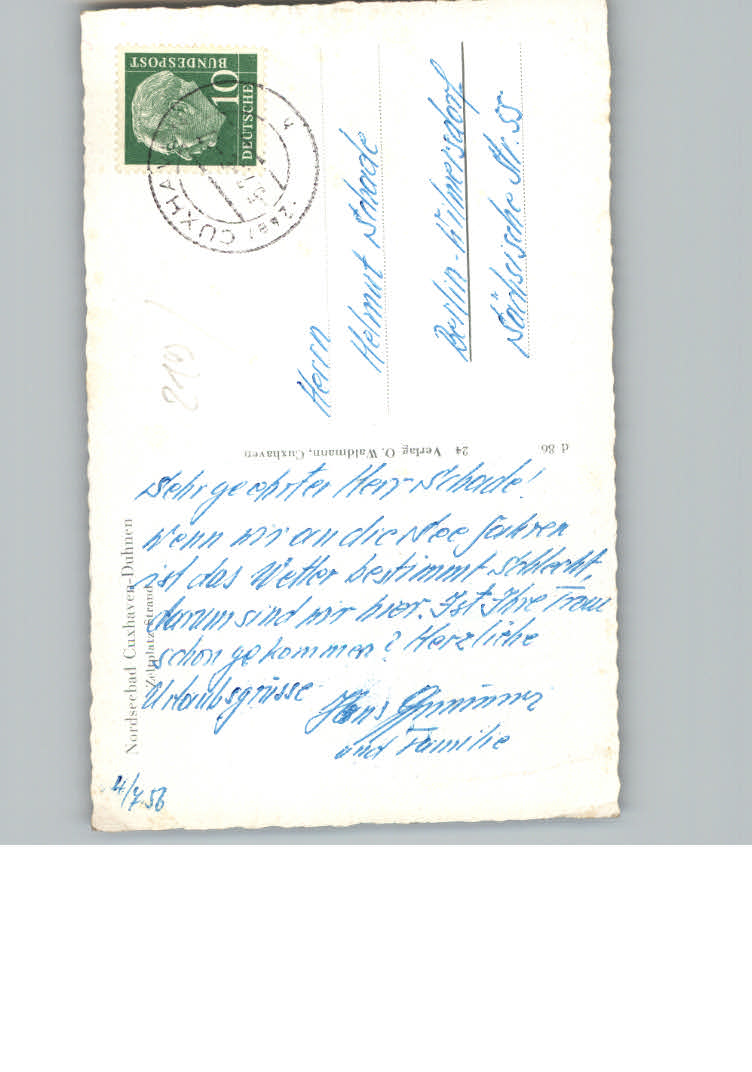 DEUTSCHE
BUNDESPOST
10
CUXHAVEN
Herrn
Helmut Schade
Berlin-Wilmersdorf
Sächsische Str. 55
d 86
24 Verlag O. Waldmann, Cuxhaven
Nordseebad Cuxhaven-Duhnen
Zeltplatz Strand
Sehr geehrter Herr Schade!
Wenn wir an die See fahren
ist das Wetter bestimmt schlecht,
darum sind wir hier. Ist Ihre Frau
schon gekommen? Herzliche
Urlaubsgrüsse
Hans
und Familie
4/7.56